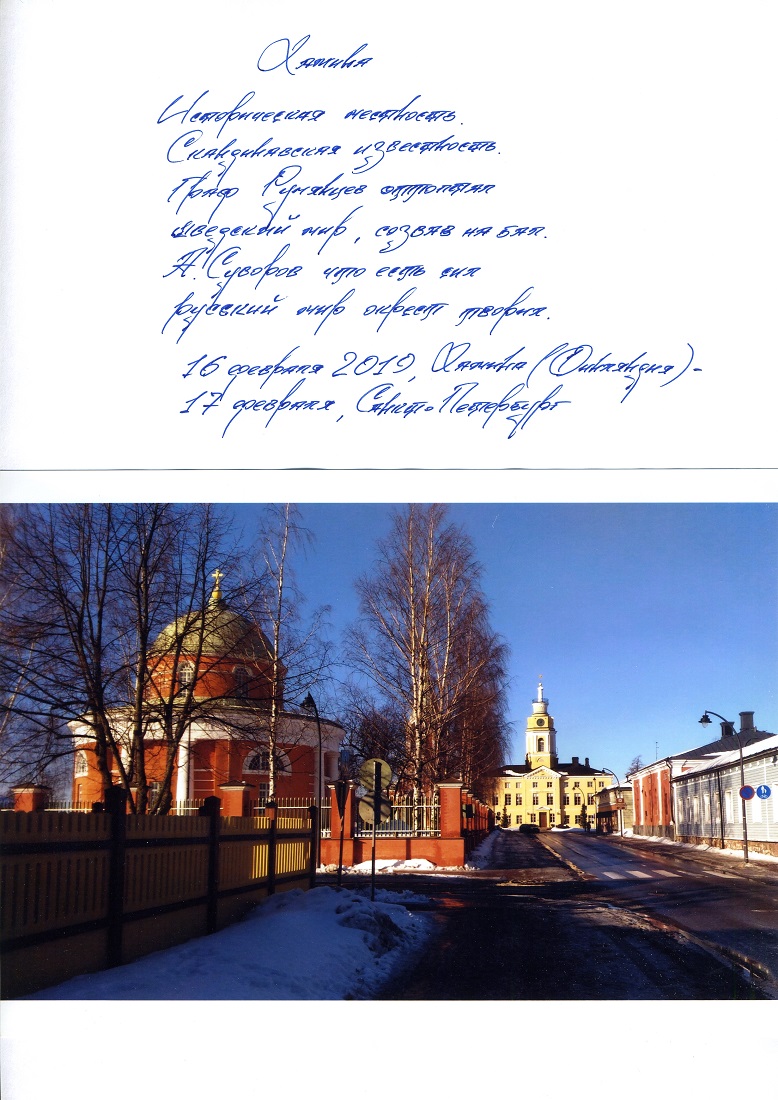 Хамина
Историческая местность.
Скандинавская известность.
Граф Румянцев оттоптал
шведский мир, созвав на бал.
А. Суворов что есть сил
русский мир окрест творил.
16 февраля 2019, Хамина (Финляндия) -
17 февраля, Санкт-Петербург